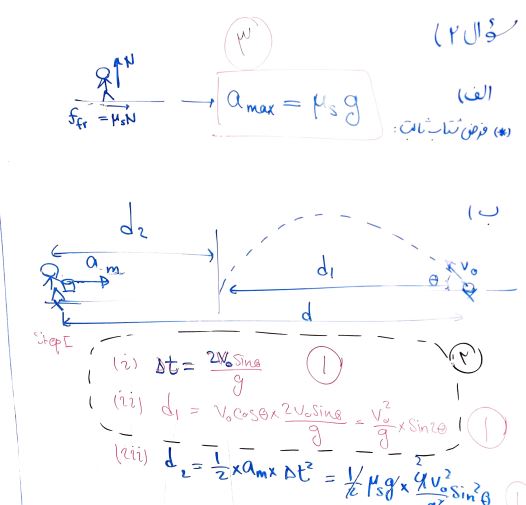 سؤال ۲)
۳
الف)
N
f_fr = μ_s N → a_max = μ_s g
(*) فرض شتاب ثابت:
ب)
d_2
a_m
d_1
θ
v_0
d
Step I
۲
(i) Δt = 2V_0 Sinθ / g ①
(ii) d_1 = V_0 Cosθ × 2V_0 Sinθ / g = V_0^2 / g × Sin2θ ①
(iii) d_2 = 1/2 × a_m × Δt^2 = 1/2 μ_s g × 4V_0^2 / g^2 Sin^2 θ